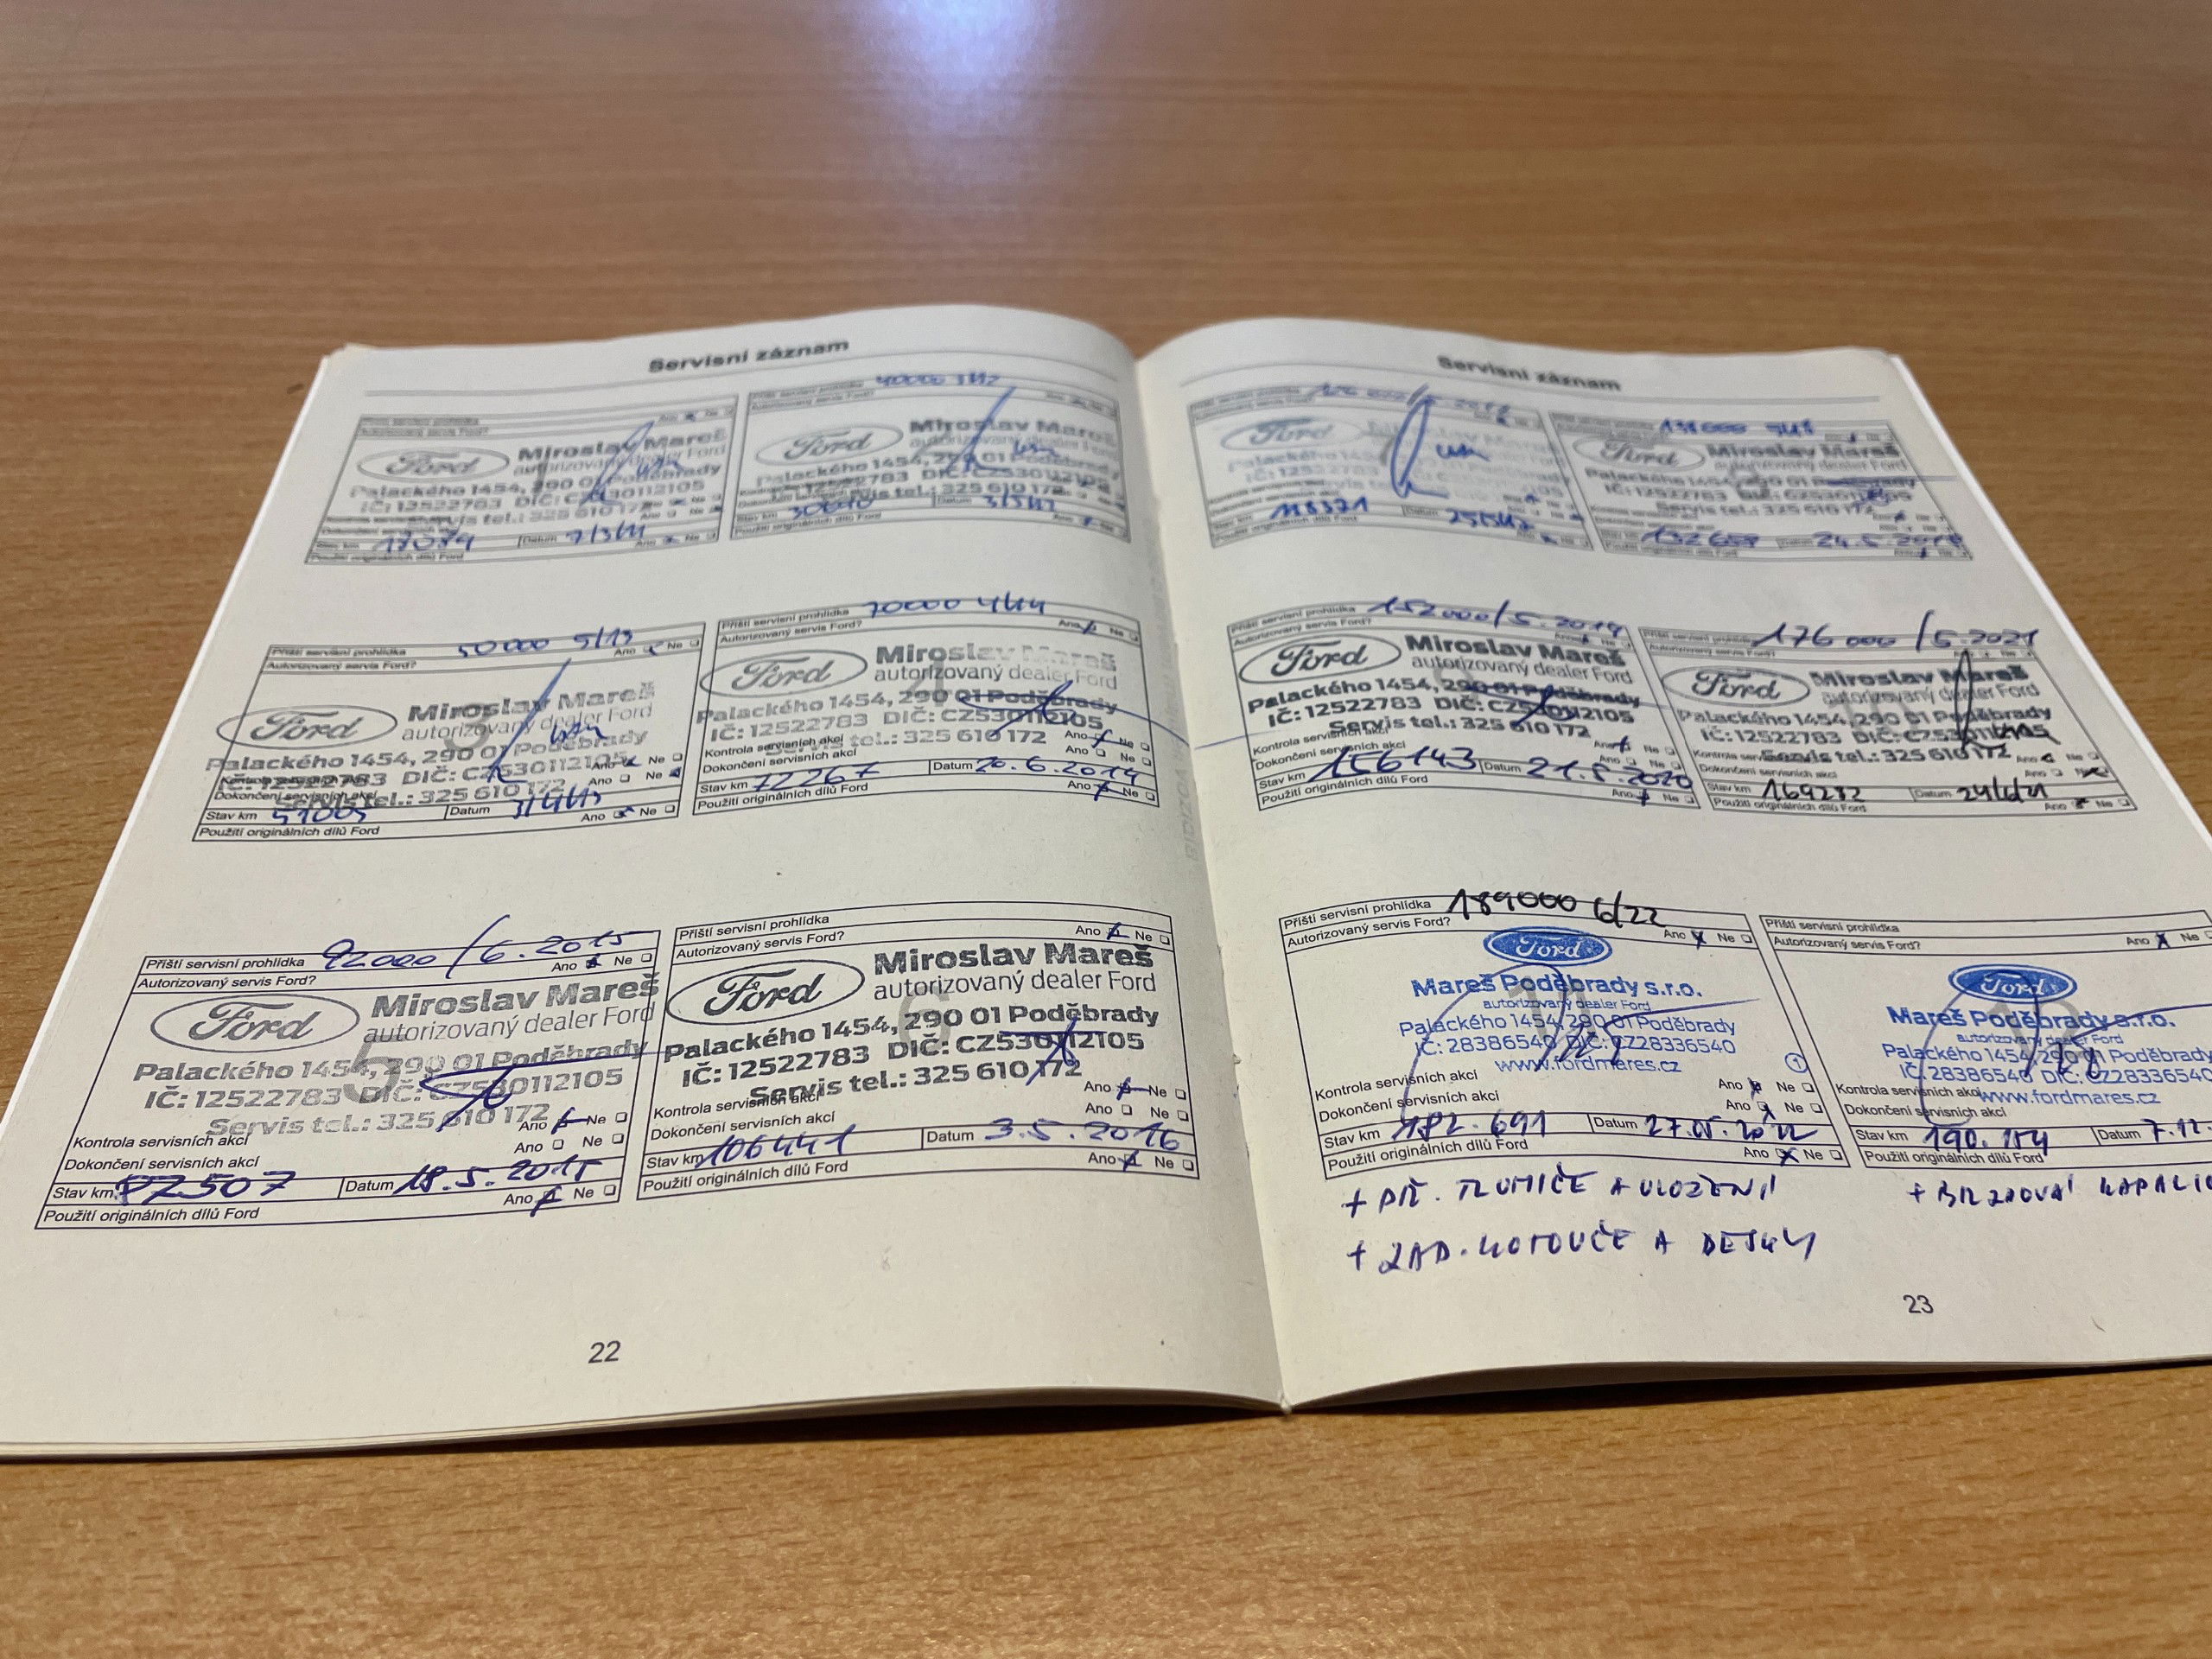 Servisní záznam
Ano Ne
Autorizovaný servis Ford?
Ford
Miroslav Mareš
autorizovaný dealer Ford
Palackého 1454, 290 01 Poděbrady
IČ: 12522783 DIČ: CZ530112105
Servis tel.: 325 610 172
Datum 7/3/11
Ano Ne
Použití originálních dílů Ford
Příští servisní prohlídka 40000
Autorizovaný servis Ford?
Ford
Miroslav Mareš
autorizovaný dealer Ford
Palackého 1454, 290 01 Poděbrady
IČ: 12522783 DIČ: CZ530112105
Servis tel.: 325 610 172
Stav km Datum
Použití originálních dílů Ford
Příští servisní prohlídka 50000 5/13
Autorizovaný servis Ford? Ano Ne
Ford
Miroslav Mareš
autorizovaný dealer Ford
Palackého 1454, 290 01 Poděbrady
IČ: 12522783 DIČ: CZ530112105
Servis tel.: 325 610 172
Kontrola servisních akcí Ano Ne
Dokončení servisních akcí Ano Ne
Stav km 51005 Datum
Použití originálních dílů Ford Ano Ne
Příští servisní prohlídka 70000 4/14
Autorizovaný servis Ford? Ano Ne
4
Ford
Miroslav Mareš
autorizovaný dealer Ford
Palackého 1454, 290 01 Poděbrady
IČ: 12522783 DIČ: CZ530112105
Servis tel.: 325 610 172
Kontrola servisních akcí Ano Ne
Dokončení servisních akcí Ano Ne
Stav km 72267 Datum 20.6.2014
Použití originálních dílů Ford Ano Ne
Příští servisní prohlídka 92000/6.2015
Autorizovaný servis Ford? Ano Ne
5
Ford
Miroslav Mareš
autorizovaný dealer Ford
Palackého 1454, 290 01 Poděbrady
IČ: 12522783 DIČ: CZ530112105
Servis tel.: 325 610 172
Kontrola servisních akcí Ano Ne
Dokončení servisních akcí Ano Ne
Stav km Datum 18.5.2015
Použití originálních dílů Ford Ano Ne
Příští servisní prohlídka
Autorizovaný servis Ford? Ano Ne
6
Ford
Miroslav Mareš
autorizovaný dealer Ford
Palackého 1454, 290 01 Poděbrady
IČ: 12522783 DIČ: CZ530112105
Servis tel.: 325 610 172
Kontrola servisních akcí Ano Ne
Dokončení servisních akcí Ano Ne
Stav km 106441 Datum 3.5.2016
Použití originálních dílů Ford Ano Ne
22
Servisní záznam
Ford
Stav km 118371 Datum
Použití originálních dílů Ford
Ford
Miroslav Mareš
autorizovaný dealer Ford
Palackého 1454, 290 01 Poděbrady
IČ: 12522783 DIČ: CZ530112105
Servis tel.: 325 610 172
Datum
Příští servisní prohlídka 152000/5.2019
Autorizovaný servis Ford? Ano Ne
Ford
Miroslav Mareš
autorizovaný dealer Ford
Palackého 1454, 290 01 Poděbrady
IČ: 12522783 DIČ: CZ530112105
Servis tel.: 325 610 172
Kontrola servisních akcí Ano Ne
Dokončení servisních akcí
Stav km 156143 Datum 21.5.2020
Použití originálních dílů Ford Ano Ne
Příští servisní prohlídka 176000/5.2021
Autorizovaný servis Ford?
Ford
Miroslav Mareš
autorizovaný dealer Ford
Palackého 1454, 290 01 Poděbrady
IČ: 12522783 DIČ: CZ530112105
Servis tel.: 325 610 172
Kontrola servisních akcí Ano
Dokončení servisních akcí
Stav km Datum
Použití originálních dílů Ford Ano Ne
Příští servisní prohlídka 189000 6/22
Autorizovaný servis Ford? Ano Ne
Ford
Mareš Poděbrady s.r.o.
autorizovaný dealer Ford
Palackého 1454, 290 01 Poděbrady
IČ: 28386540 DIČ: CZ28336540
www.fordmares.cz
1
Kontrola servisních akcí Ano Ne
Dokončení servisních akcí Ano Ne
Stav km 182.691 Datum 27.05.2022
Použití originálních dílů Ford Ano Ne
+ PŘ. TLUMIČE A ULOŽENÍ
+ ZAD. KOTOUČE A DESKY
Příští servisní prohlídka
Autorizovaný servis Ford? Ano Ne
Ford
Mareš Poděbrady s.r.o.
autorizovaný dealer Ford
Palackého 1454, 290 01 Poděbrady
IČ: 28386540 DIČ: CZ28336540
www.fordmares.cz
Kontrola servisních akcí
Dokončení servisních akcí
Stav km Datum 7.12.
Použití originálních dílů Ford
+ BRZDOVÁ
23